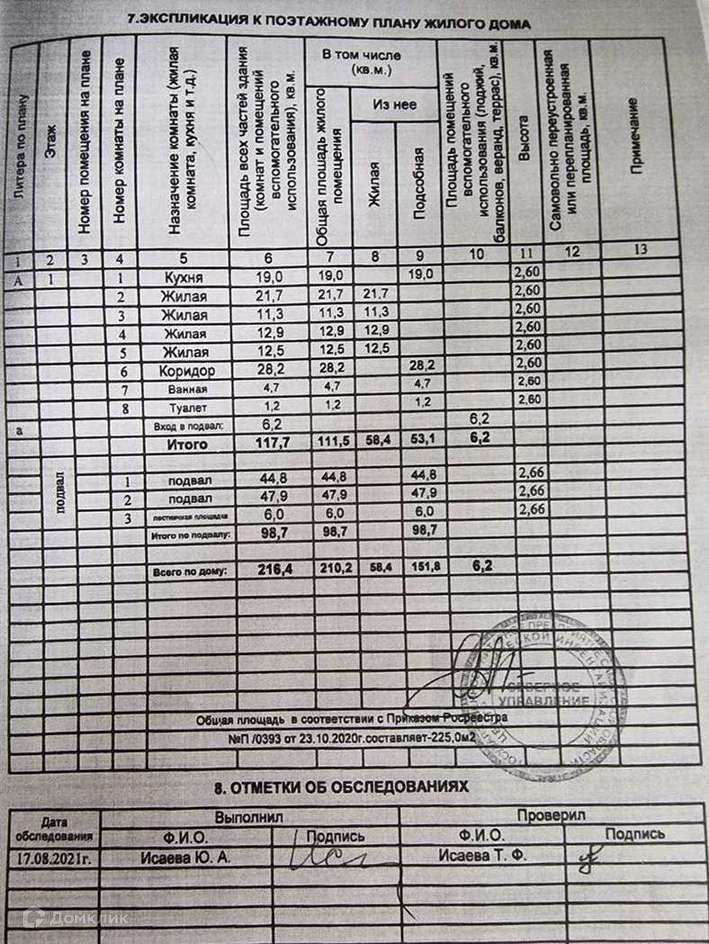 7.ЭКСПЛИКАЦИЯ К ПОЭТАЖНОМУ ПЛАНУ ЖИЛОГО ДОМА
Литера по плану
Этаж
Номер помещения на плане
Номер комнаты на плане
Назначение комнаты (жилая
комната, кухня и т.д.)
Площадь всех частей здания
(комнат и помещений
вспомогательного
использования), кв.м.
В том числе
(кв.м.)
Общая площадь жилого
помещения
Из нее
Жилая
Подсобная
Площадь помещений
вспомогательного
использования (лоджий,
балконов, веранд, террас), кв.м.
Высота
Самовольно переустроенная
или перепланированная
площадь, кв.м.
Примечание
1 2 3 4 5 6 7 8 9 10 11 12 13
А 1 1 Кухня 19,0 19,0 19,0 2,60
2 Жилая 21,7 21,7 21,7 2,60
3 Жилая 11,3 11,3 11,3 2,60
4 Жилая 12,9 12,9 12,9 2,60
5 Жилая 12,5 12,5 12,5 2,60
6 Коридор 28,2 28,2 28,2 2,60
7 Ванная 4,7 4,7 4,7 2,60
8 Туалет 1,2 1,2 1,2 2,60
а Вход в подвал: 6,2 6,2
Итого 117,7 111,5 58,4 53,1 6,2
подвал
1 подвал 44,8 44,8 44,8 2,66
2 подвал 47,9 47,9 47,9 2,66
3 лестничная площадка 6,0 6,0 6,0 2,66
Итого по подвалу: 98,7 98,7 98,7
Всего по дому: 216,4 210,2 58,4 151,8 6,2
СЕВЕРНОЕ
УПРАВЛЕНИЕ
Общая площадь в соответствии с Приказом Росреестра
№П /0393 от 23.10.2020г.составляет-225,0м2
8. ОТМЕТКИ ОБ ОБСЛЕДОВАНИЯХ
Дата
обследования
Выполнил
Проверил
Ф.И.О. Подпись Ф.И.О. Подпись
17.08.2021г. Исаева Ю. А. Исаева Т. Ф.
Домклик